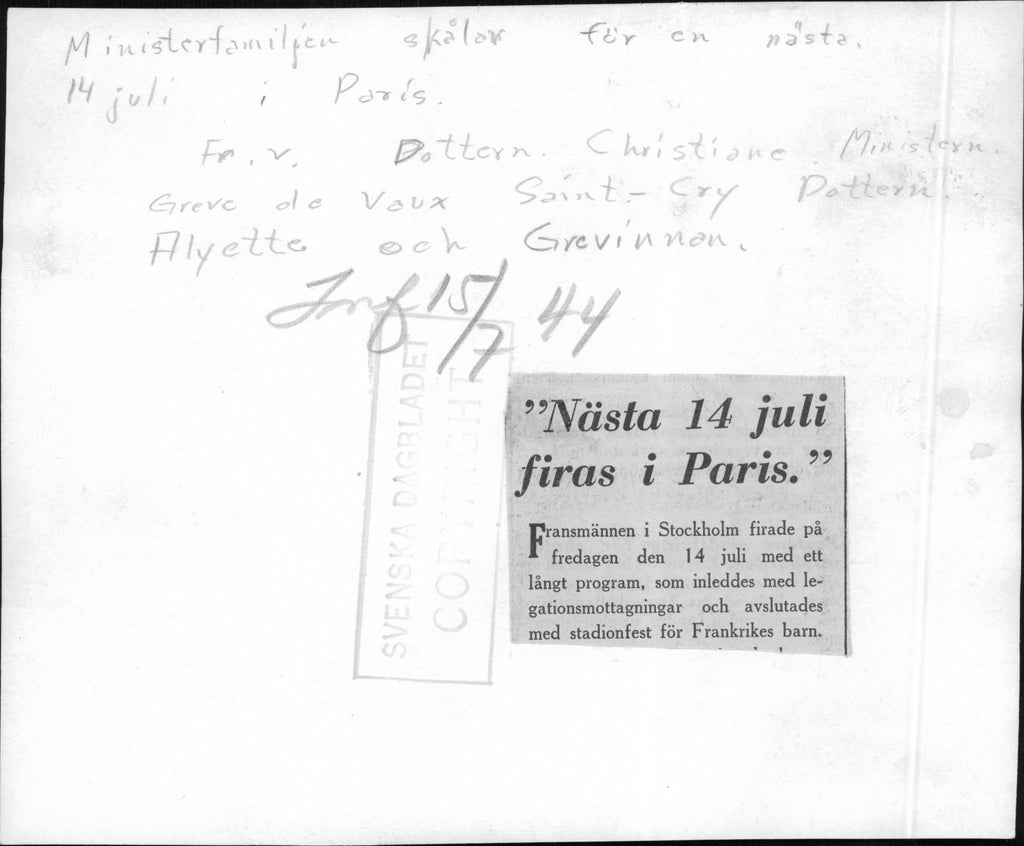 Ministerfamiljen skålar för en nästa.
14 juli i Paris.
Fr. v. Dottern. Christiane. Ministern.
Greve de Vaux Saint-Cry Dottern.
Alyette och Grevinnan.
Inf 15/7 44
SVENSKA DAGBLADET
COPYRIGHT
”Nästa 14 juli
firas i Paris.”
Fransmännen i Stockholm firade på
fredagen den 14 juli med ett
långt program, som inleddes med le-
gationsmottagningar och avslutades
med stadionfest för Frankrikes barn.